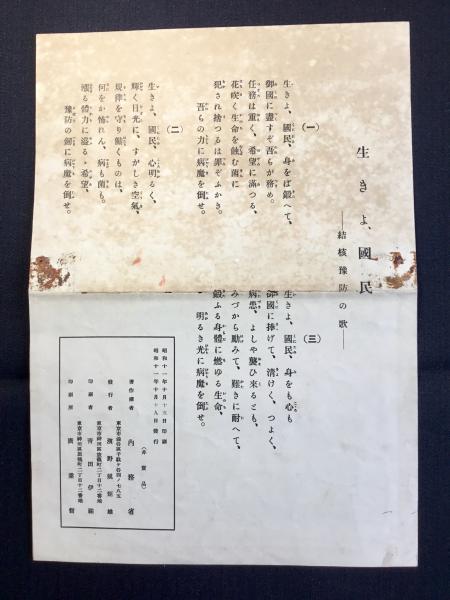 生きよ、國民
――結核豫防の歌――
(一)
生きよ、國民、身をば鍛へて、
御國に盡すぞ吾らが務め。
任務は重く、希望に滿つる、
花咲く生命を蝕む菌に
犯され捨つるは罪ぞふかき。
吾らの力に病魔を倒せ。
(二)
生きよ、國民、心明るく、
輝く日光に、すがしき空氣、
規律を守り働くものは、
何をか怖れん、病も菌も。
漲る體力に溢るゝ希望、
豫防の劍に病魔を倒せ。
(三)
生きよ、國民、身をも心も
御國に捧げて、清けく、つよく、
病患、よしや襲ひ來るとも、
みづから勵みて、難きに耐へて、
鍛ふる身體に燃ゆる生命、
明るき光に病魔を倒せ。
昭和十一年十月十五日印刷
昭和十一年十月十八日發行
(非賣品)
著作權者 內務省
東京市澁谷區千駄ケ谷四ノ七八五
發行者 濱野
東京市神田區 町二丁目十二番地
印刷者 青田伊
東京市神田區 町二丁目十二番地
印刷所